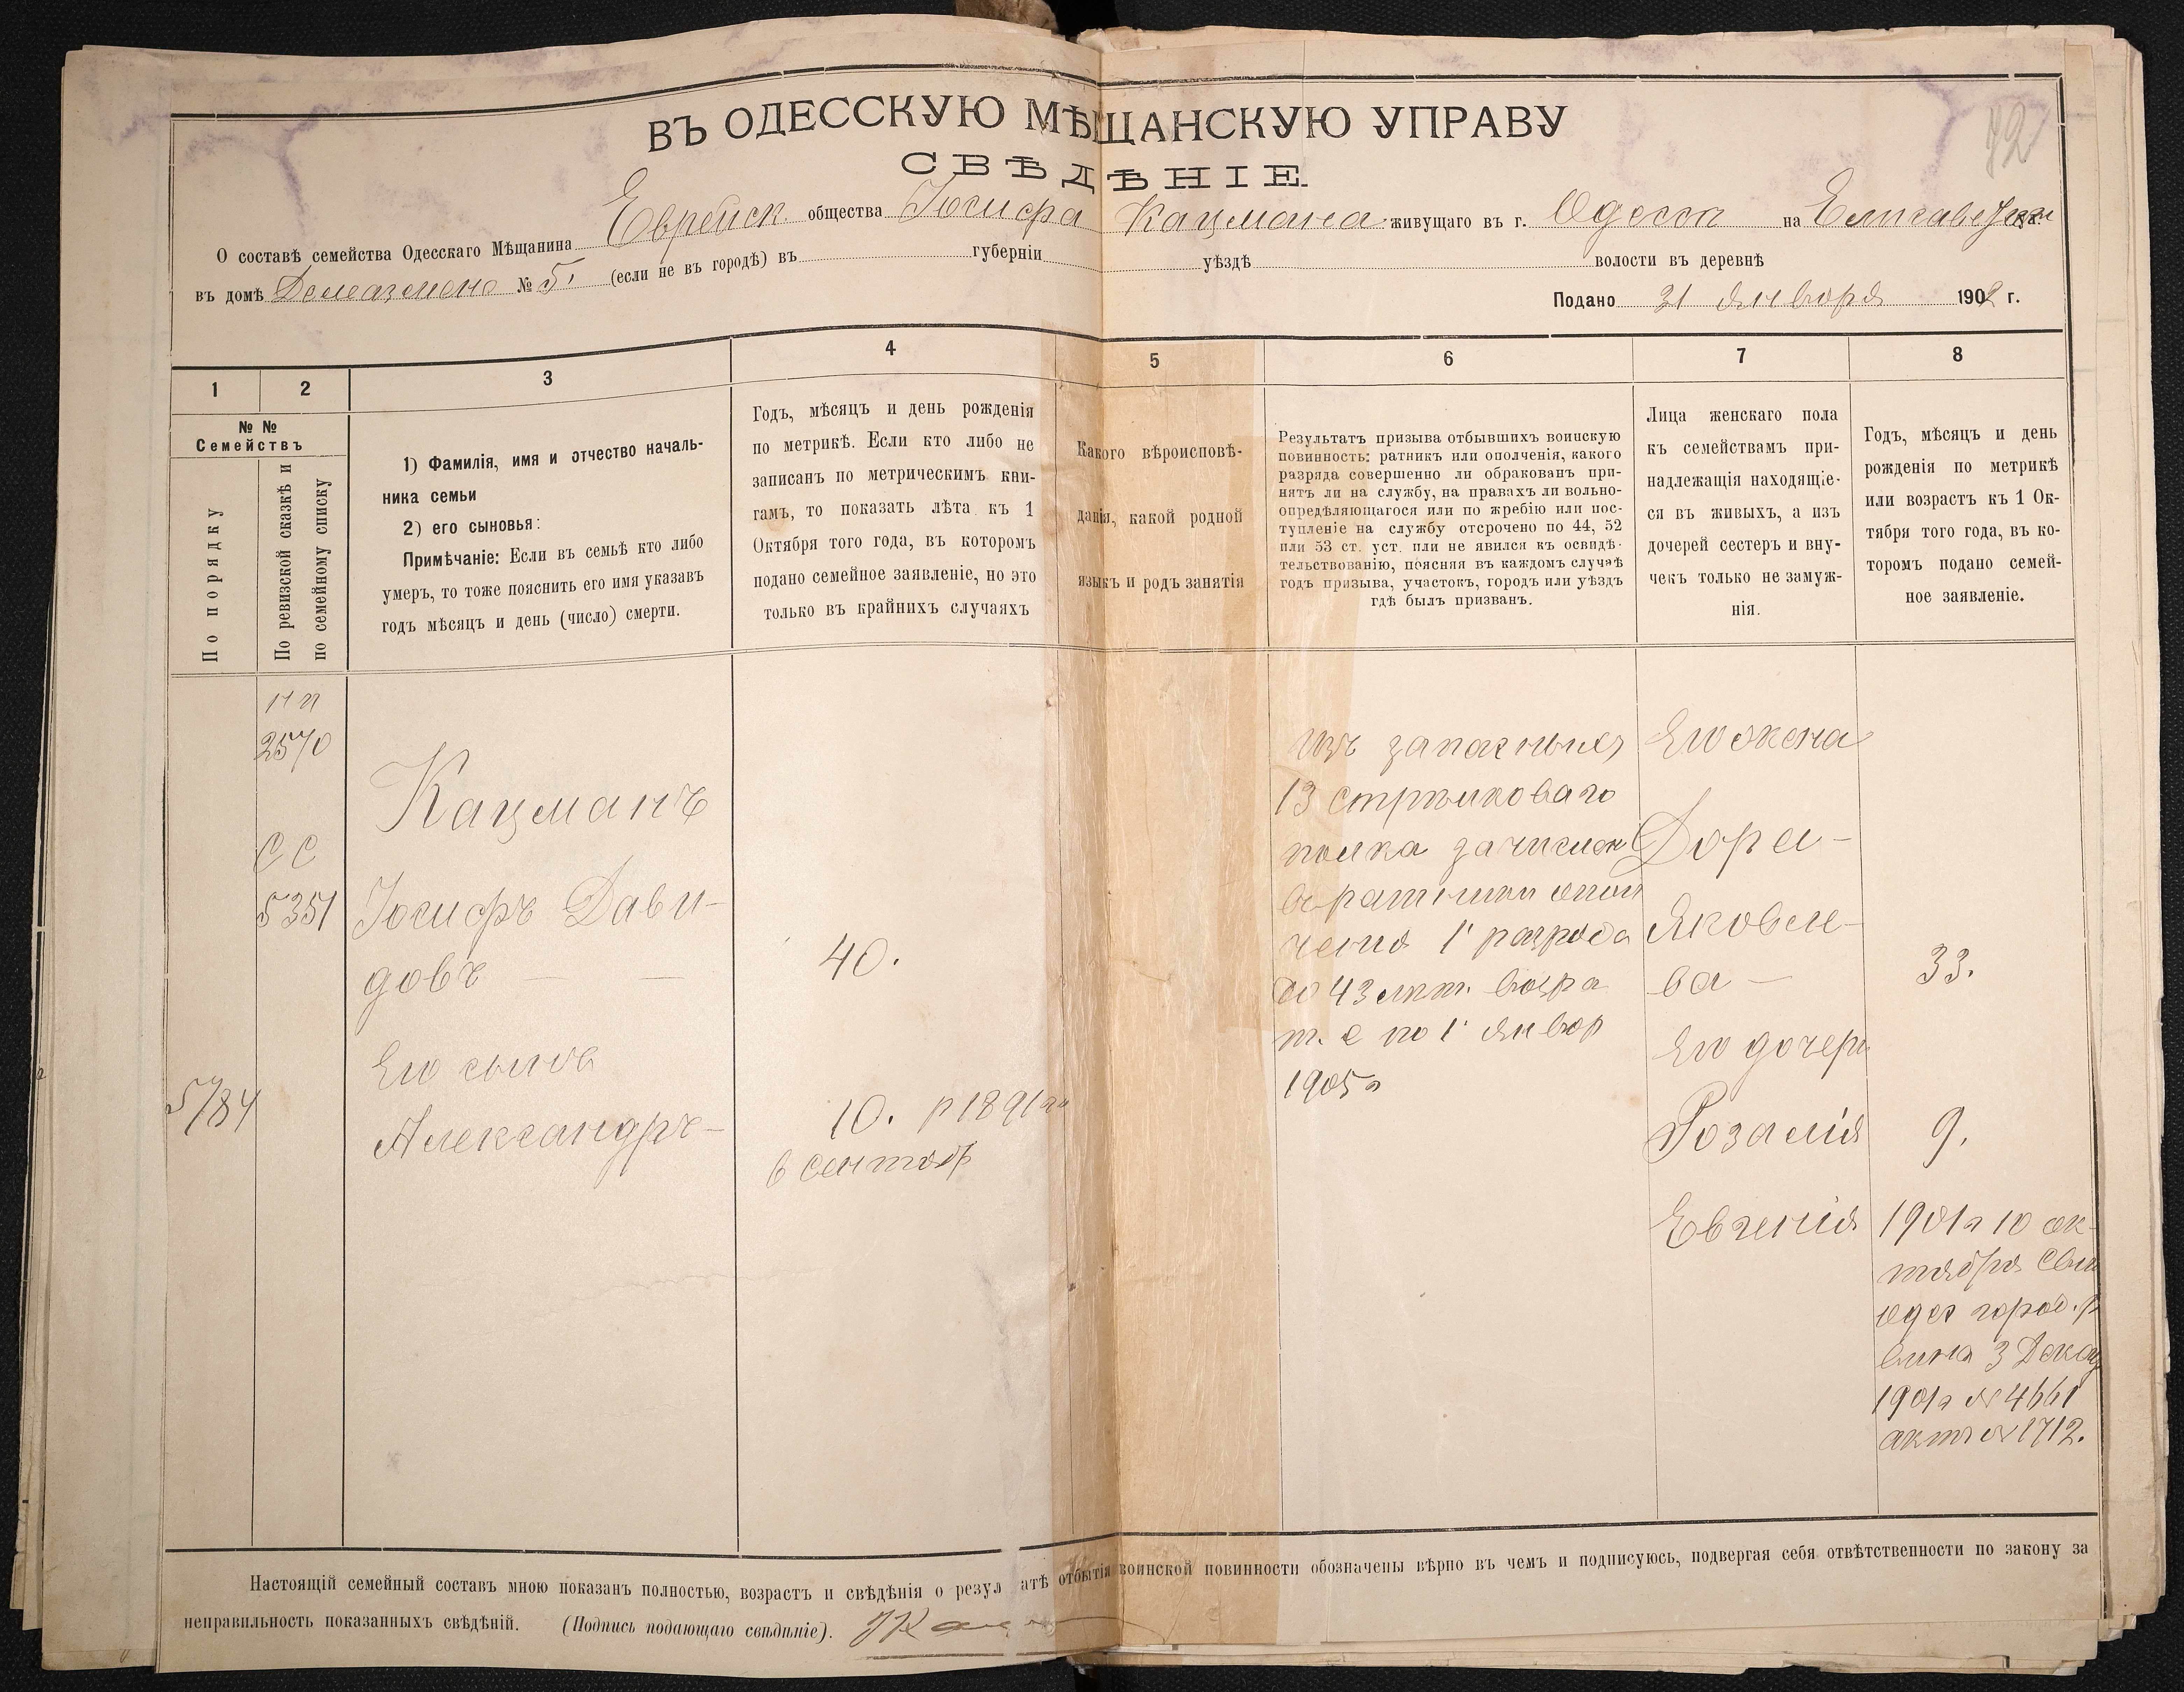 72
ВЪ ОДЕССКУЮ МѢЩАНСКУЮ УПРАВУ
СВѢДѢНІЕ
О составѣ семейства Одесскаго Мѣщанина Еврейск. общества Іосифа Кацмана живущаго въ г. Одессѣ на
въ домѣ № 5. (если не въ городѣ) въ губерніи уѣздѣ волости въ деревнѣ
Подано 31 Января 1902 г.
1
2
3
4
5
6
7
8
№ №
Семействъ
По порядку
По ревизской сказкѣ и
по семейному списку
1) Фамилія, имя и отчество началь-
ника семьи
2) его сыновья:
Примѣчаніе: Если въ семьѣ кто либо
умеръ, то тоже пояснить его имя указавъ
годъ мѣсяцъ и день (число) смерти.
Годъ, мѣсяцъ и день рожденія
по метрикѣ. Если кто либо не
записанъ по метрическимъ кни-
гамъ, то показать лѣта къ 1
Октября того года, въ которомъ
подано семейное заявленіе, но это
только въ крайнихъ случаяхъ
Какого вѣроисповѣ-
данія, какой родной
языкъ и родъ занятія
Результатъ призыва отбывшихъ воинскую
повинность: ратникъ или ополченія, какого
разряда совершенно ли обракованъ при-
нятъ ли на службу, на правахъ ли вольно-
опредѣляющагося или по жребію или пос-
тупленіе на службу отсрочено по 44, 52
или 53 ст. уст. или не явился къ освидѣ-
тельствованію, поясняя въ каждомъ случаѣ
годъ призыва, участокъ, городъ или уѣздъ
гдѣ былъ призванъ.
Лица женскаго пола
къ семействамъ при-
надлежащія находящіе-
ся въ живыхъ, а изъ
дочерей сестеръ и вну-
чекъ только не замуж-
нія.
Годъ, мѣсяцъ и день
рожденія по метрикѣ
или возрастъ къ 1 Ок-
тября того года, въ ко-
торомъ подано семей-
ное заявленіе.
2570
СС
5351
5784
Кацманъ
Іосифъ Дави-
довъ
Его сынъ
Александръ
40.
10. р 1891 г.
6 сентяб
изъ запасныхъ
13 стрѣлковаго
полка зачислен
въ ратники опол
ченія 1 разряда
до 43 лѣт. возра
т. е по 1 Январ
1905 г
Его жена
Дора
Яковле-
ва
Его дочери
Розалія
Евгенія
33.
9.
1901 г 10 ок-
тября
одес город. р
3 Декаб
1901 г № 4661
актъ № 1712.
Настоящій семейный составъ мною показанъ полностью, возрастъ и свѣдѣнія о резул атѣ отбытія воинской повинности обозначены вѣрно въ чемъ и подписуюсь, подвергая себя отвѣтственности по закону за
неправильность показанныхъ свѣдѣній. (Подпись подающаго свѣдѣніе).